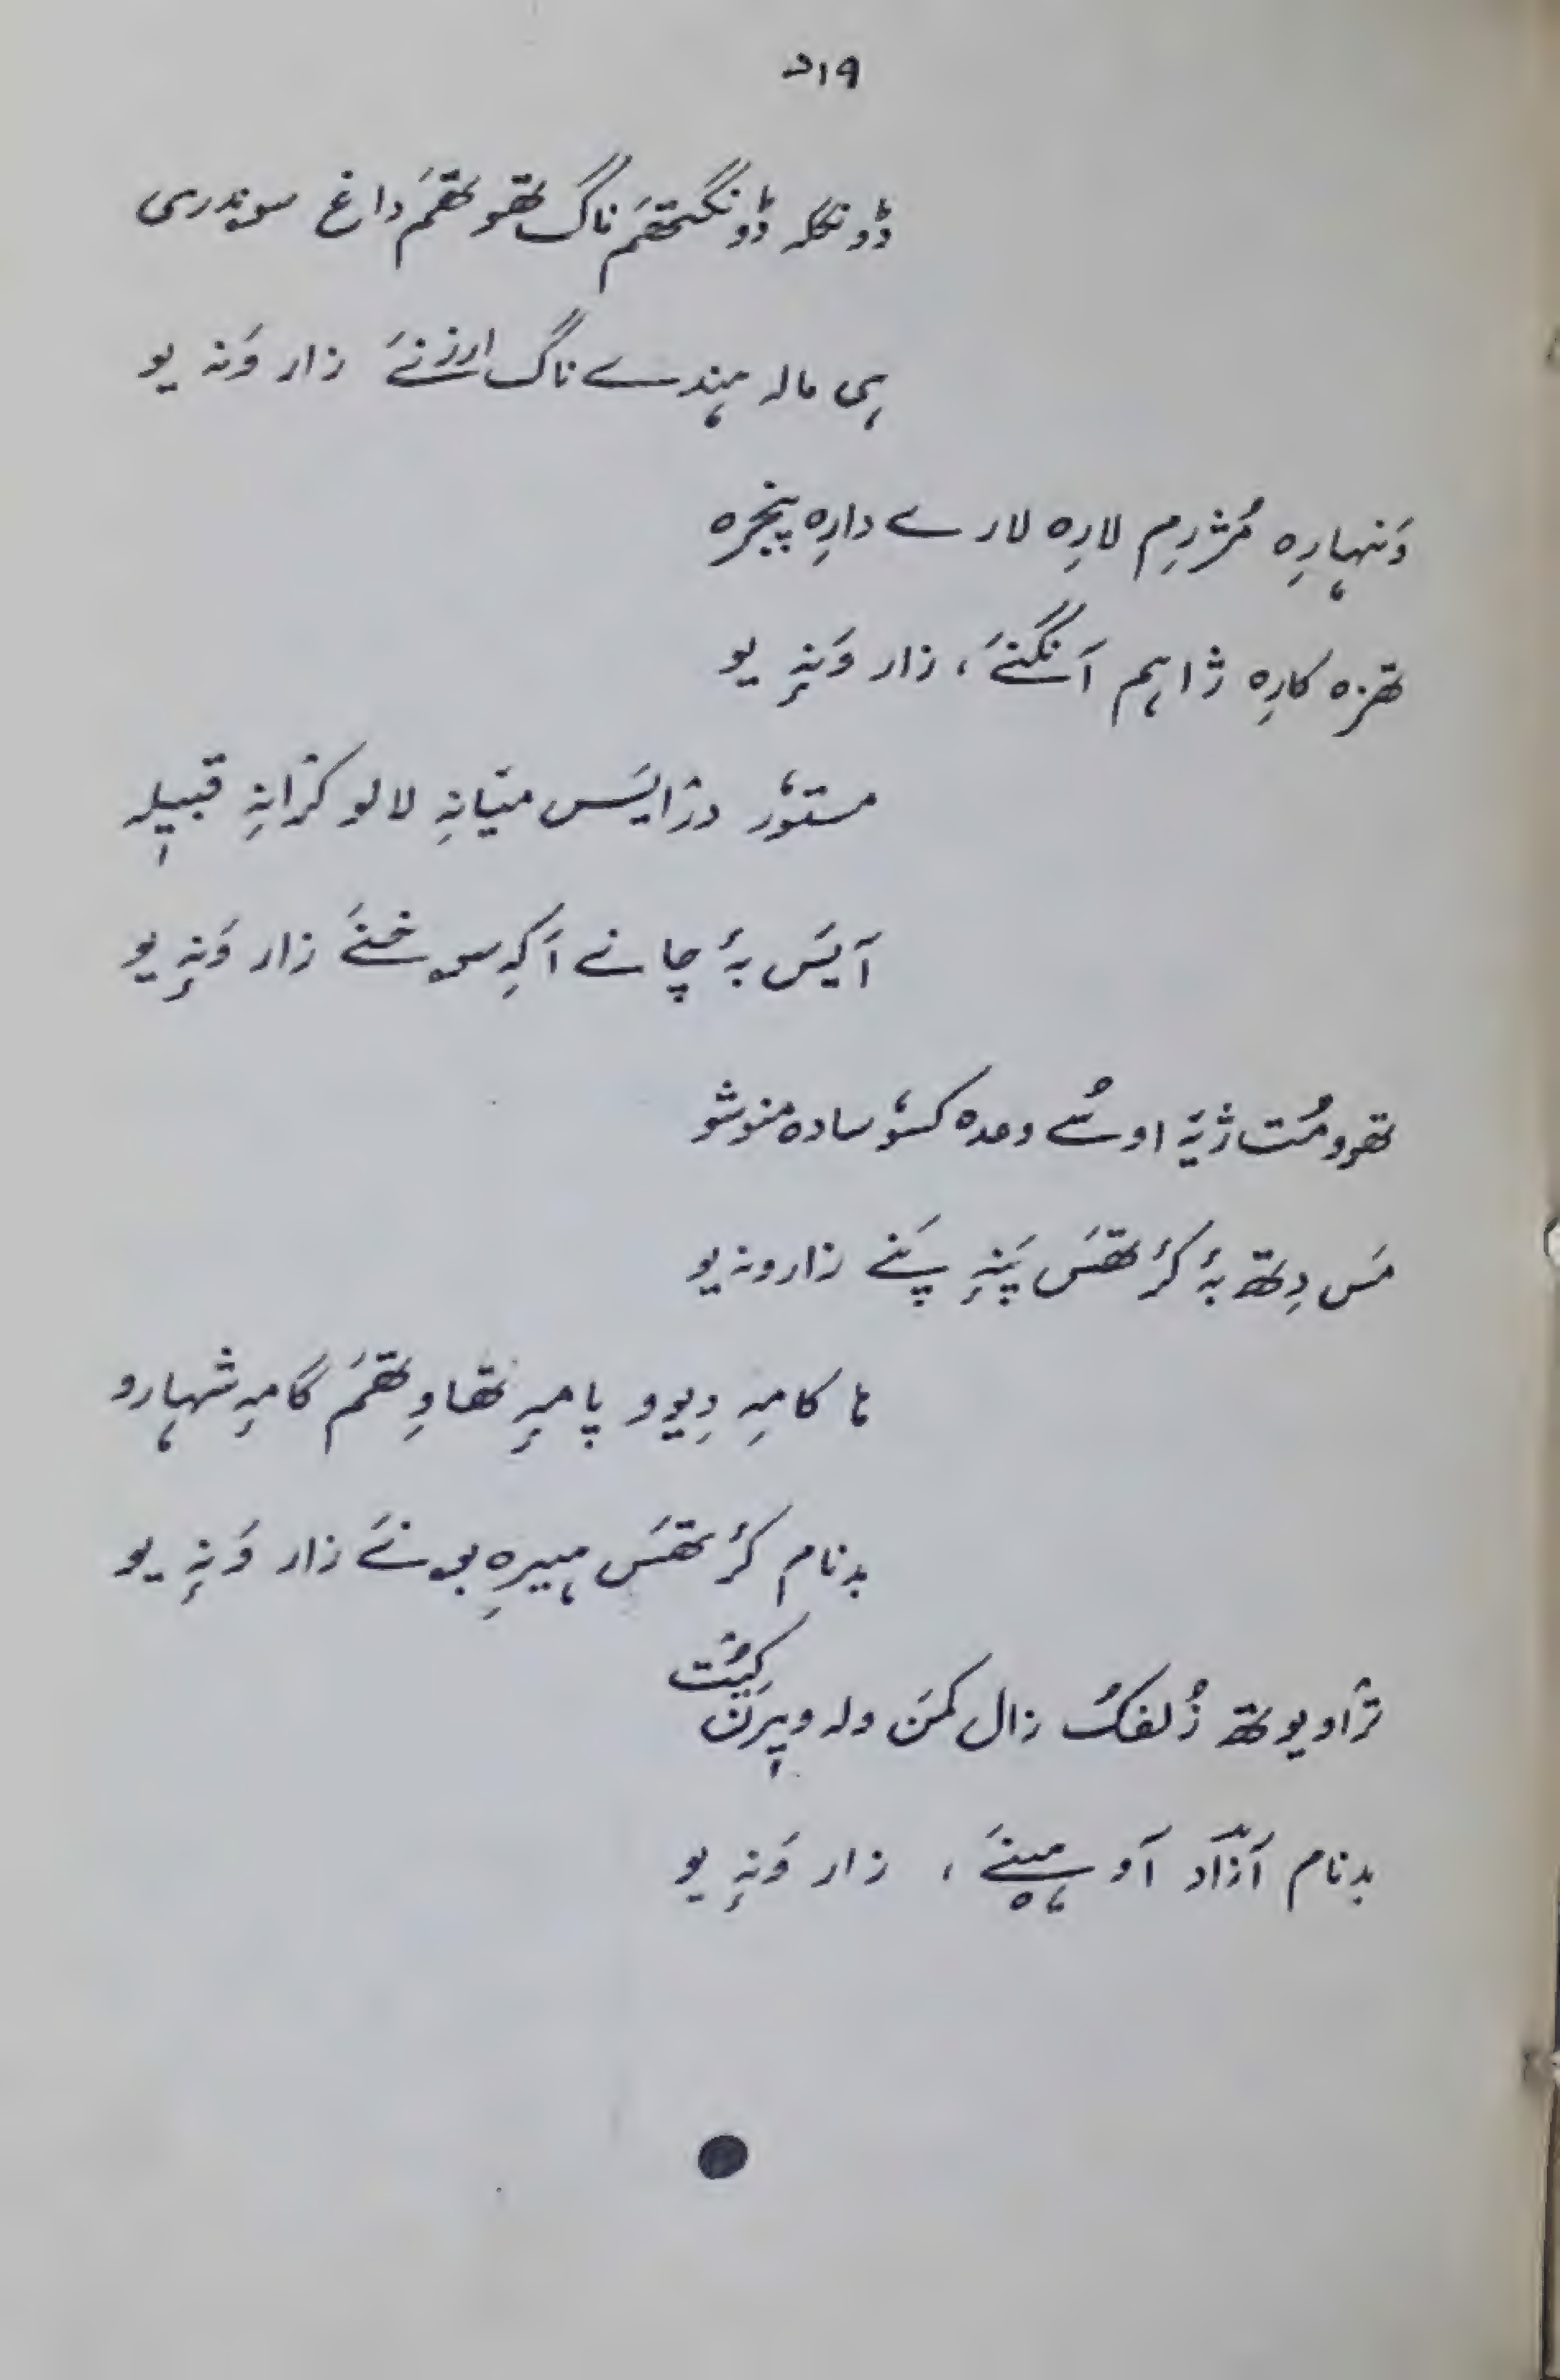 ۱۹د
ڈونگلہ ڈونگتھَم ناگ تھوتھَم داغ سوندری
ہی مالہ ہندے ناگ ارزنےَ زار وَنہ یو
وَنہارِہ مُژرِم لارِہ لارے دارِہ پنجرہ
تھزہ کارِہ ژاہم اَنگنےَ، زار وَنہِ یو
مستوٗر درٛایَس میٛانہِ لالو کرٛانہِ قبیلہ
آیَس بہٕ چانے اَکہِ سۅخنےَ زار وَنہِ یو
تھرومُت ژےَ اوسُے وعدہ کسوٗ سادہ منوشو
مَس دِتھ بہٕ کرٕتھَس پَنہِ پَنے زار ونہ یو
ہا کامہِ دِیوو پامہِ تھاوِتھَم گامہِ شہارو
بدنام کرٕتھَس ہیرِہ بۄنےَ زار وَنہِ یو
ترٛاویوتھ زُلفکُ زال کمَن ولہ ویرَن کیُٛت
بدنام آزاد آو ہینےَ، زار وَنہِ یو